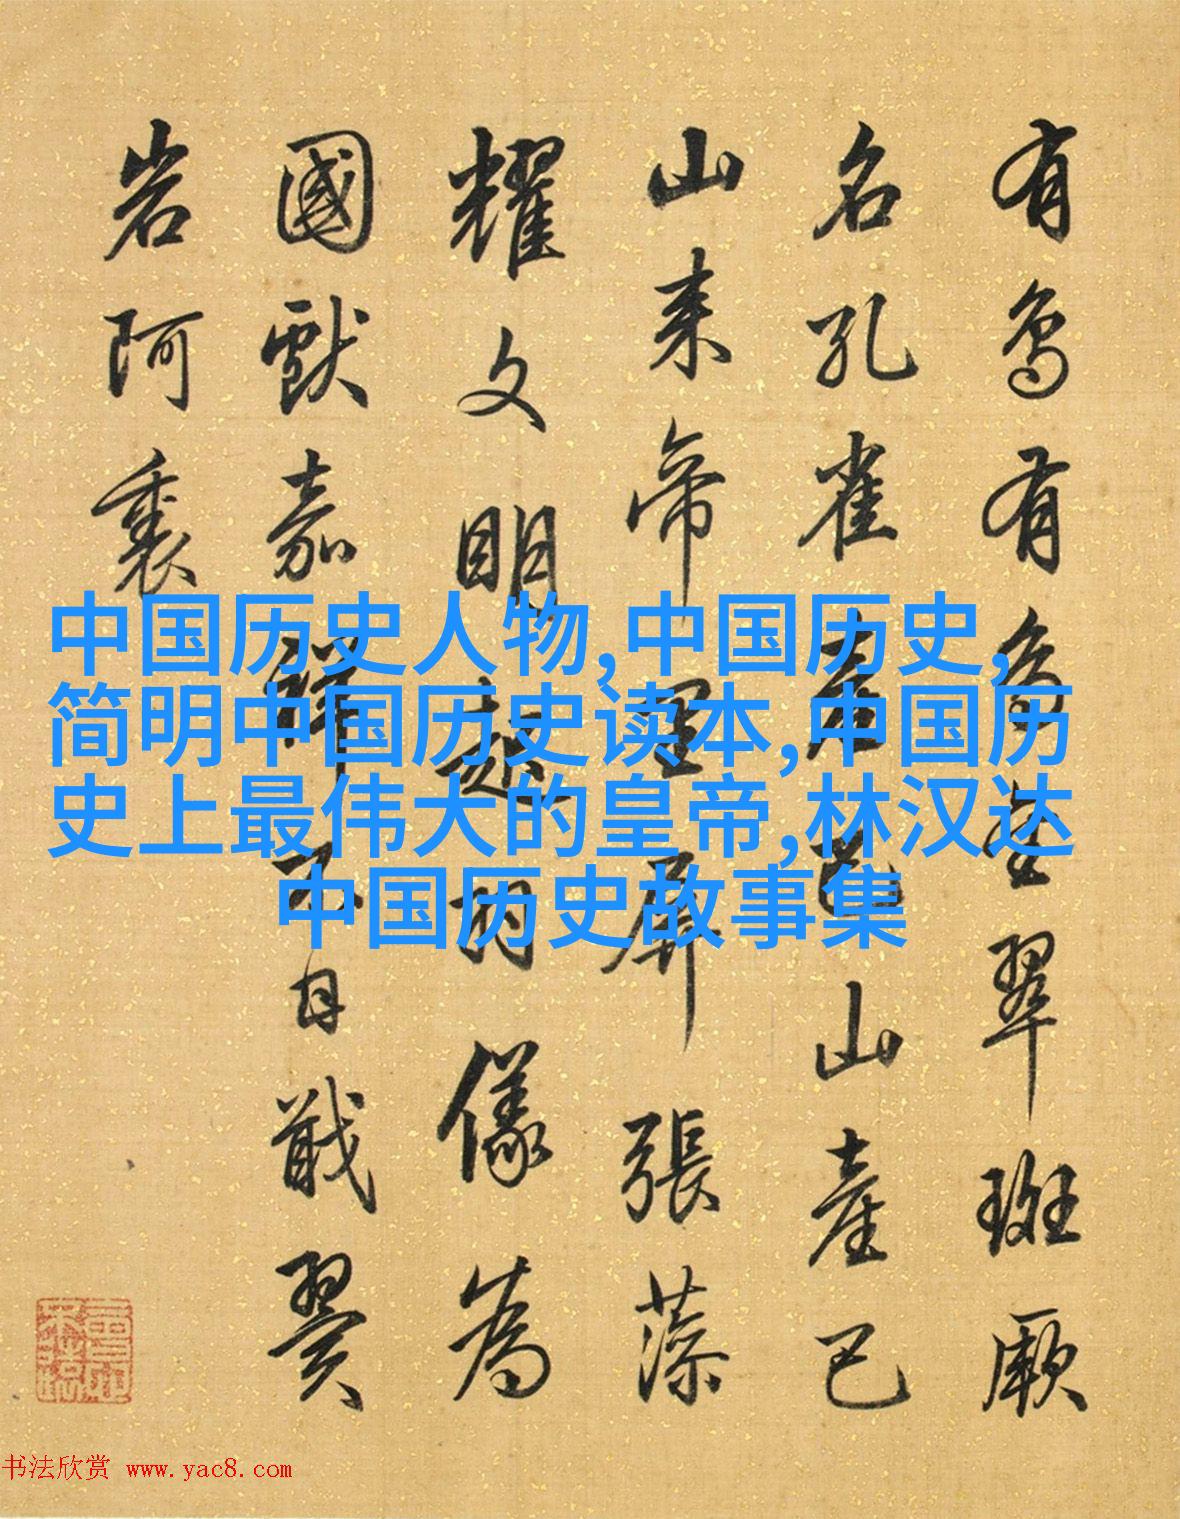 有鳥有鳥翠斑厥
名孔雀山產巴
山來帝里屏張藻
耀文明羽儀為
國獻嘉祥不日戢翼
岩阿裏
中国历史人物,中国历史,
简明中国历史读本,中国历
史上最伟大的皇帝,林汉达
中国历史故事集
书法欣赏 www.yac8.com